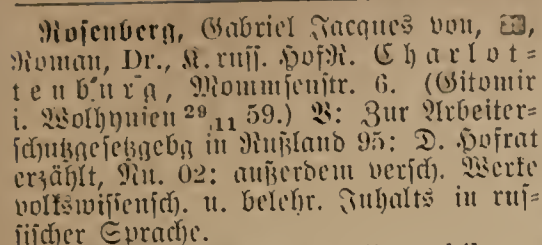 Rosenberg, Gabriel Jacques von,
Roman, Dr., K. russ. HofR. Charlot=
tenburg, Mommsenstr. 6. (Gitomir
i. Wolhynien 29/11 59.) V: Zur Arbeiter=
schutzgesetzgebg in Rußland 95: D. Hofrat
erzählt, Nu. 02: außerdem versch. Werke
volkswissensch. u. belehr. Inhalts in rus=
sischer Sprache.